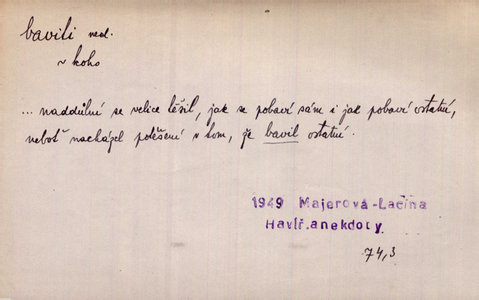 baviti ned.
~ koho
... naddůlní se velice těšil, jak se pobaví sám i jak pobaví ostatní,
neboť nacházel potěšení v tom, že bavil ostatní.
1949 Majerová-Lačina
Havíř.anekdoty
74,3